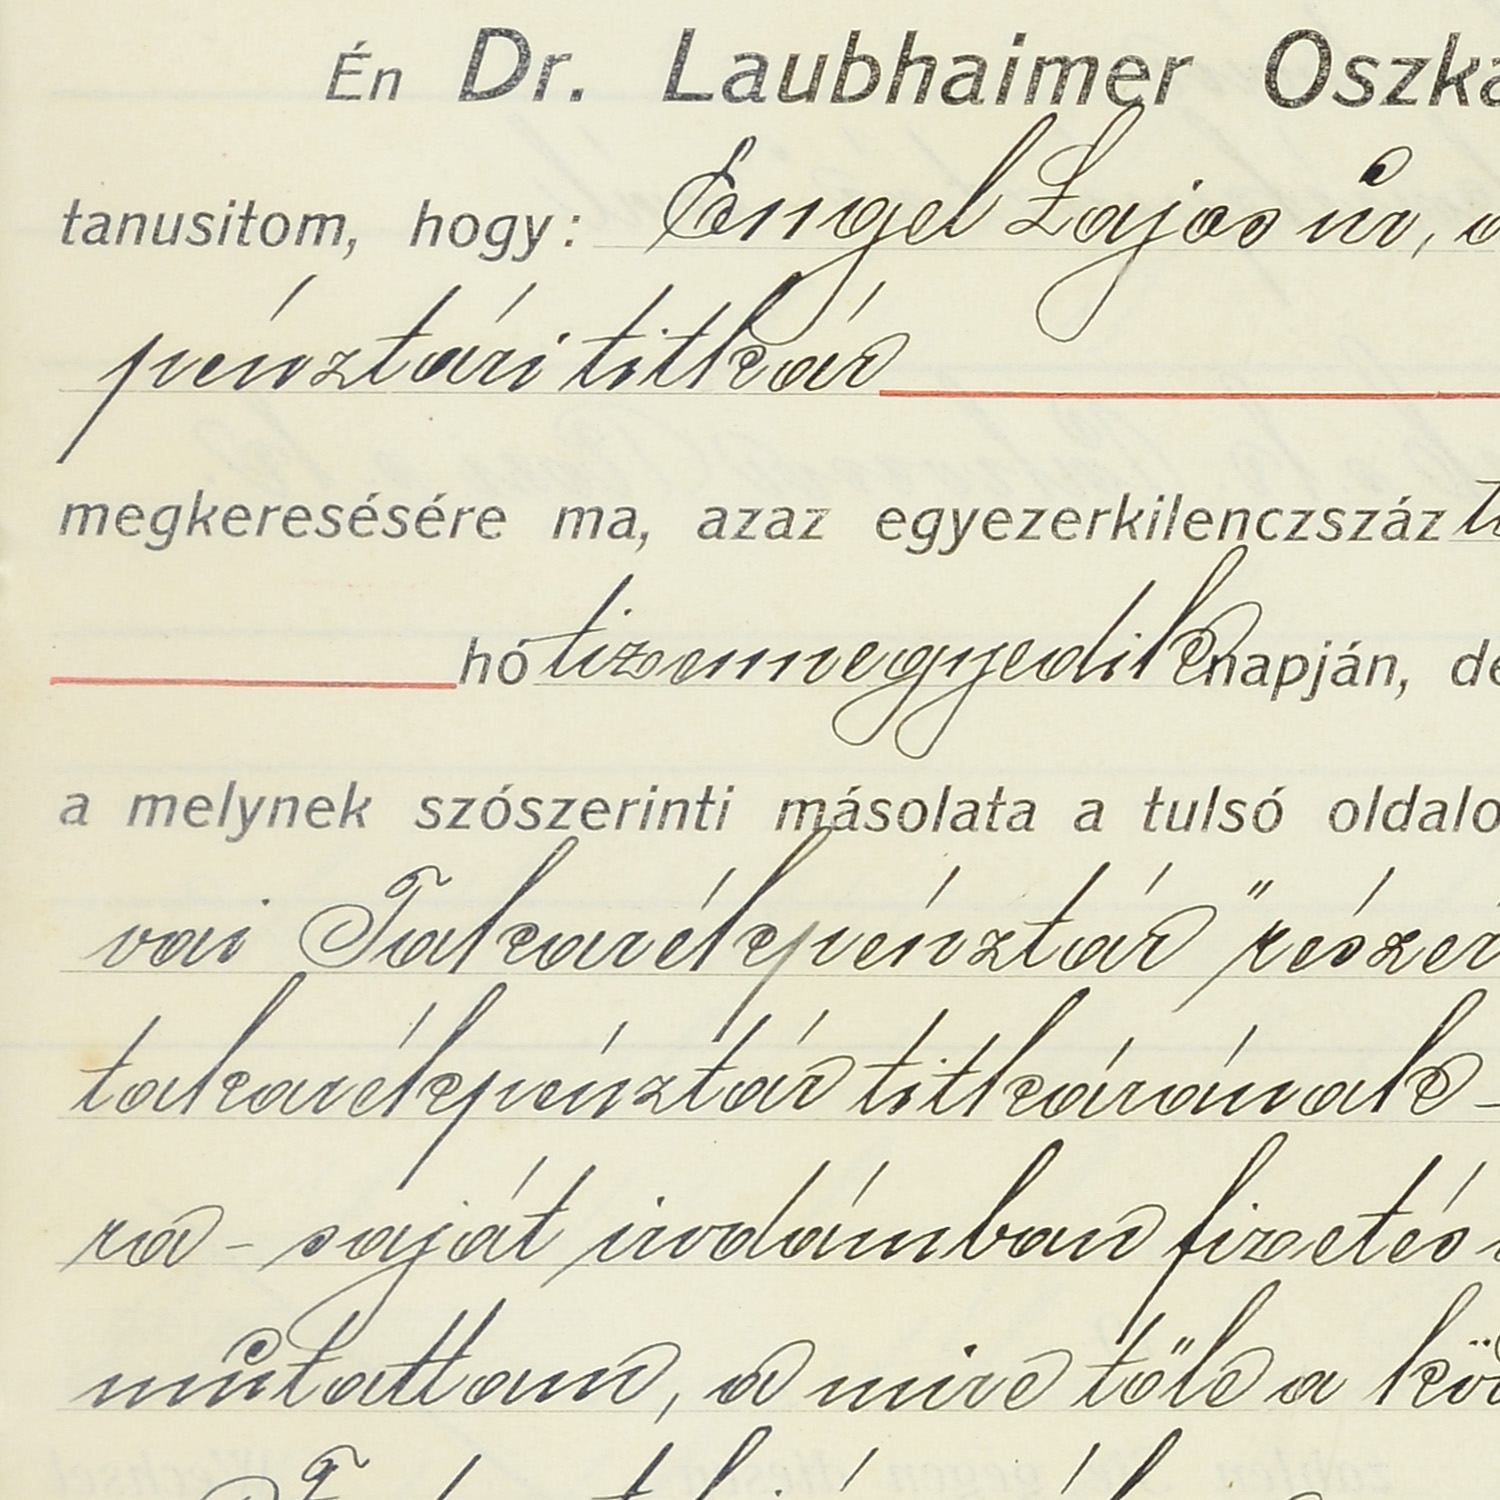 Én Dr. Laubhaimer Oszká
tanusitom, hogy: Engel Lajos úr, a
pénztári titkár
megkeresésére ma, azaz egyezerkilenczszáz ti
hó tizennegyedik napján, dé
a melynek szószerinti másolata a tulsó oldalo
vai Takarékpénztár" részér
takarékpénztár titkárának -
ra - saját irodámban fizetés
mutattam, a mire tőle a köv